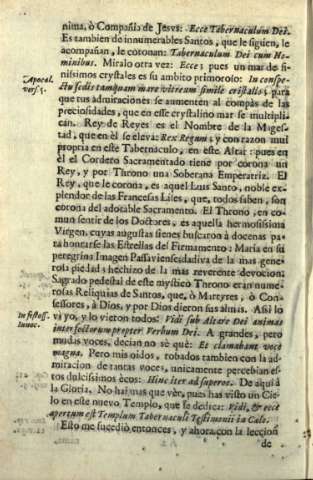 nima, ò Compañia de Jesvs: Ecce Tabernaculum Dei.
Es tambien de innumerables Santos, que le siguen, le
acompañan, le coronan: Tabernaculum Dei cum Ho-
minibus. Miralo otra vez: Ecce; pues un mar de fi-
Apocal. vers.
nissimos cristales es su ambito primoroso: In conspe-
ctu sedis tamquam mare vitreum simile cristallo; para
que tus admiraciones se aumenten al compàs de las
preciosidades, que en esse crystalino mar se multipli-
can. Rey de Reyes es el Nombre de la Mages-
tad, que en èl se eleva: Rex Regum; y con razon mui
propria en este Tabernaculo, en este Altar: pues en
èl el Cordero Sacramentado tiene por corona un
Rey, y por Throno una Soberana Emperatriz. El
Rey, que le corona, es aquel Luis Santo, noble ex-
plendor de las Francesas Lises, que, todos saben, son
corona del adorable Sacramento. El Throno, en co-
mun sentir de los Doctores, es aquella hermosissima
Virgen, cuyas augustas sienes buscaron à docenas pa-
ra honrarse las Estrellas del Firmamento: Maria en su
peregrina Imagen Passaviense; dadiva de la mas gene-
rosa piedad; hechizo de la mas reverente devocion.
Sagrado pedestal de este mystico Throno eran nume-
rosas Reliquias de Santos, que, ò Martyres, ò Con-
fessores, à Dios, y por Dios dieron sus almas. Assi lo
In festo SS. Innoc.
vi yo, y lo vieron todos: Vidi sub Altare Dei animas
interfectorum propter Verbum Dei. A grandes, pero
mudas voces, decian no sè què: Et clamabant voce
magna. Pero mis oidos, robados tambien con la ad-
miracion de tantas voces, unicamente percebian es-
tos dulcissimos ècos: Hinc iter ad superos. De aqui à
la Gloria. No hai mas que vèr, pues has visto un Cie-
lo en este nuevo Templo, que se dedica: Vidi, & ecce
apertum est Templum Tabernaculi Testimonii in Cælo.
Esto me sucediò entonces, y ahora con la leccion
de